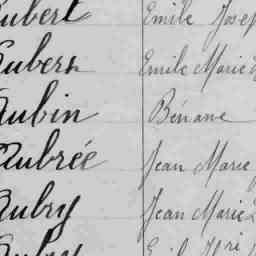 Aubert Emile Josep
Aubers Emile Marie
Aubin Bénane
Aubrée Jean Marie
Aubry Jean Marie